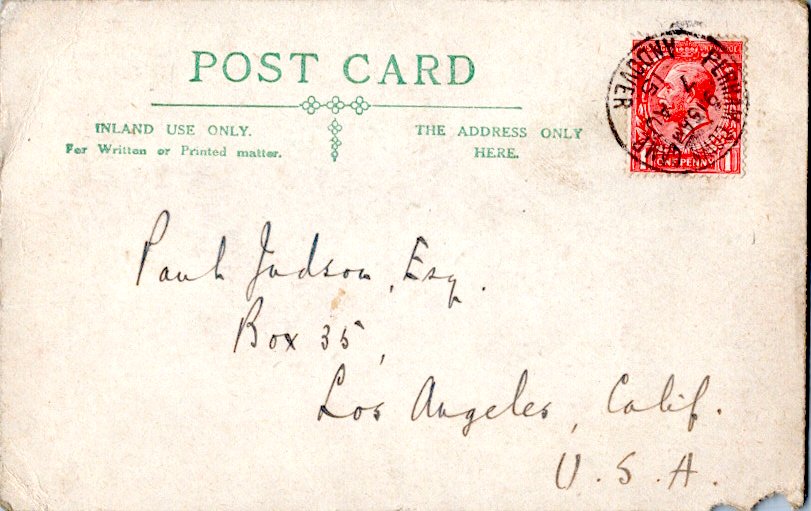 POST CARD
INLAND USE ONLY.
For Written or Printed matter.
THE ADDRESS ONLY
HERE.
ANDOVER
ONE PENNY
1
Paul Judson, Esq.
Box 35,
Los Angeles, Calif.
U. S. A.